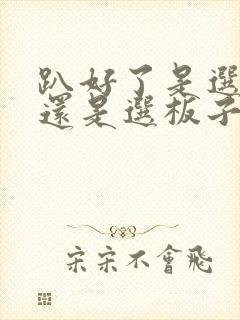 趴好了是選
還是選板子
宋宋不會飛